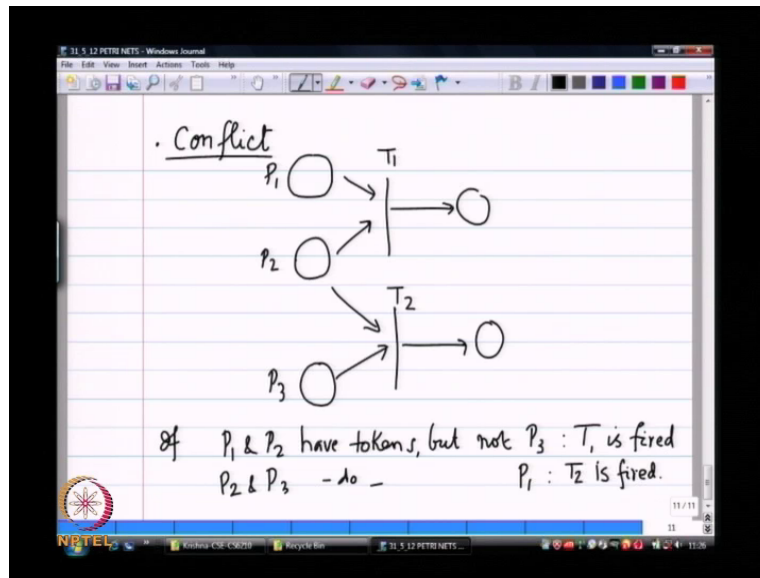 31_5_12 PETRI NETS - Windows Journal
File Edit View Insert Actions Tools Help
B I
. Conflict
T1
P1
P2
T2
P3
If P1 & P2 have tokens, but not P3 : T1 is fired
P2 & P3 - do - P1 : T2 is fired.
11 / 11
11
NPTEL
Krishna-CSE-CS6210 Recycle Bin 31_5_12 PETRI NETS ... 11:26